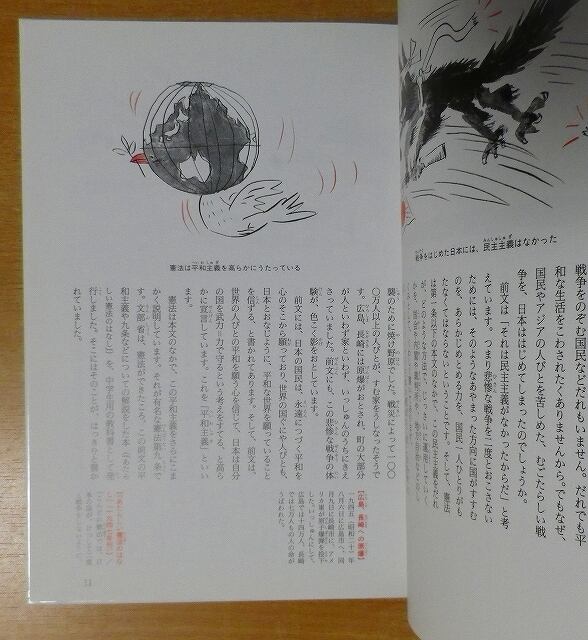 戦争をはじめた日本には、民主主義はなかった
戦争をのぞむ国民などだれもいません。だれでも平
和な生活をこわされたくありませんから。でもなぜ、
国民やアジアの人びとを苦しめた、むごたらしい戦
争を、日本ははじめてしまったのでしょうか。
前文は「それは民主主義がなかったからだ」と考
えています。つまり悲惨な戦争を二度とおこさない
ためには、そのようなあやまった方向に国がすすむ
のを、あらかじめとめる力を、国民一人ひとりがも
たなくてはならないということです。そして、憲法
憲法は平和主義を高らかにうたっている
襲のために焼け野原でした。戦災によって一〇〇
〇万人以上の人びとが、すむ家をうしなったそうで
す。広島、長崎には原爆がおとされ、町の大部分
が人といわず家といわず、いっしゅんのうちにきえ
さっていました。前文にも、この悲惨な戦争の体
験が、色こく影をおとしています。
前文には、日本の国民は、永遠につづく平和を
心のそこから願っており、世界の国ぐにや人びとも、
日本とおなじように、平和な世界を願っていること
を信ずる、と書かれてあります。そして、前文は、
世界の人びとの平和を願う心を信じて、日本は自分
の国を武力＝力で守るという考えをすてる、と高ら
かに宣言しています。これを「平和主義」といい
ます。
憲法は本文のなかで、この平和主義をさらにこま
かく説明しています。それが有名な憲法第九条で
す。文部省は、憲法ができたころ、この前文の平
和主義や九条などについての解説をした本(『あたら
しい憲法のはなし』)を、中学生用の教科書として発
行しました。そこにはそのことが、はっきりと書か
れていました。
【広島、長崎への原爆】
一九四五(昭和二十)年
八月六日に広島市へ、同
月九日に長崎市に、アメ
リカ軍が原子爆弾を投下
しました。いっしゅんにして、
広島では十四万人、長崎
では七万人もの人の命が
うばわれた。
11